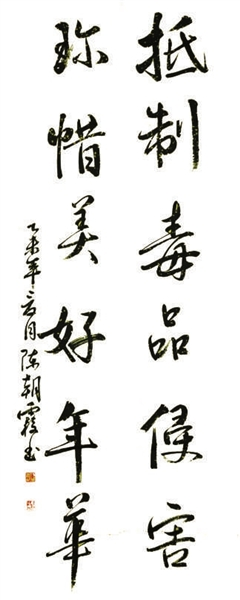 抵制毒品侵害
珍惜美好年华
乙未年六月陈朝霞书